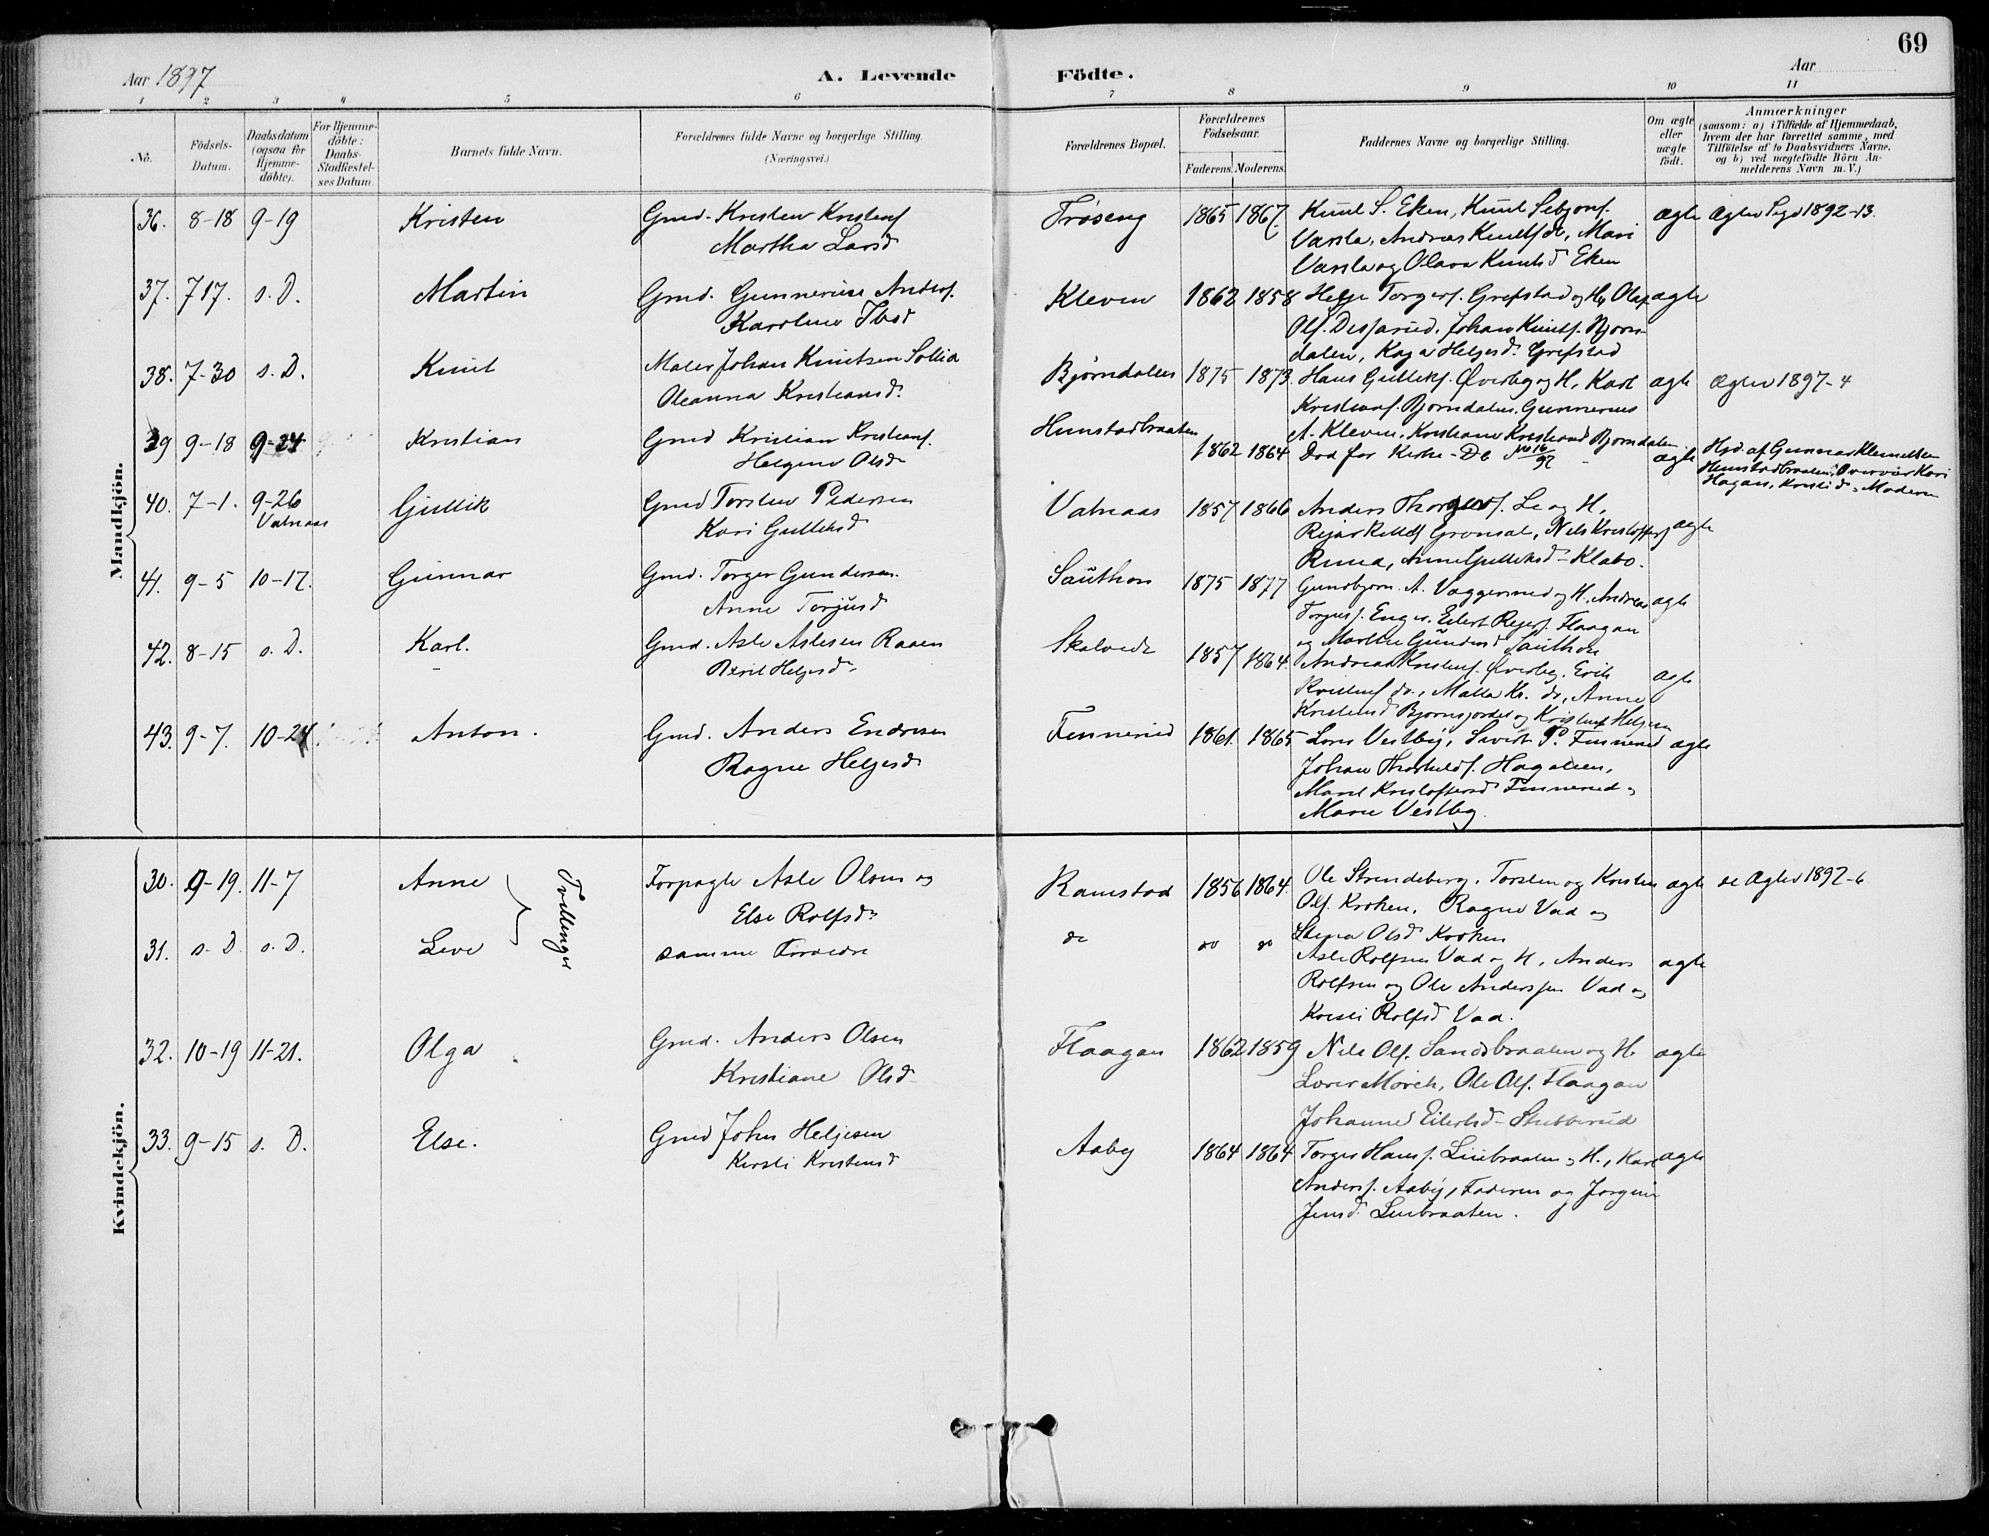 69
Aar 1897
A. Levende
Födte.
Aar
1 2 3 4 5 6 7 8 9 10 11
No.
Födsels-Datum.
Daabsdatum (ogsaa for Hjemme-döbte).
For Hjemme-döbte: Daabs-Stadfæstel-ses Datum.
Barnets fulde Navn.
Forældrenes fulde Navne og borgerlige Stilling.
(Næringsvei.)
Forældrenes Bopæl.
Forældrenes Födselsaar.
Faderens. Moderens.
Faddernes Navne og borgerlige Stilling.
Om ægte eller uægte födt.
Anmærkninger
(saasom: a) i Tilfælde af Hjemmedaab,
hvem der har forrettet samme, med
Tilföielse af to Daabsvidners Navne,
og b) ved uægtefödte Börn An-
melderens Navn m. V.)
Mandkjön.
36. 8-18 9-19 Kristen Gmd. Kristen Kristens. Trøseng 1865 1867. Knut S. Eken, Knut Sebjørns. ægte
Martha Larsd Varsla, Andreas Knuts do, Mari
Varsla og Olava Knutsd Eken
37. 717. s. D. Martin Gmd. Gunnerius Anders. Kleven 1862 1858 Helje Torgers. Grefstad og H, Olaf ægte
Karoline Ibsd Ols. Desserud, Johan Knuts. Bjørn-
dalen, Kaga Heljesd. Grefstad
38. 7-30 s. D. Knut Maler Johan Knutsen Sollia Bjørndalen 1875 1873. Hans Gulleks. Øverby og H, Karl ægte Ægtev 1897-4
Oleanna Kristiansd. Kristians. Bjørndalen, Gunnerius
A. Kleven, Kristiane Kristiansd Bjørndalen
39 9-18 9-24 Kristian Gmd Kristian Kristians. Hunstadbraaten 1862 1864 Død før Kirke-Db ægte Hjd. af Gunnar Klemetsen
Helgine Olsd Hunstadbraaten, Overvær Kari
Hagan, Moderen
40. 7-1. 9-26 Gullik Gmd Torsten Pedersen Vatnaas 1857 1866 Anders Thorgers. Le og H, ægte
Vatnaas Kari Gulleksd Grønsal, Nils Kristoffers
Ruud, Anne Gulleksd Klabo.
41. 9-5 10-17. Gunnar Gmd. Torger Gundersen. Sauthon 1875 1877 Gundbjørn A. Vaggersrud og H, Andreas ægte
Anne Torjusd Torgers. Enger, Eilert Reiers. Flaagan
og Marthe Gundersd Sauthon
42. 8-15 s. D. Karl. Gmd. Asle Aslesen Raaen Skalvedt 1857 1864. Andreas Kristens. Øverby, Erik ægte
Berit Heljesd Kristens do, Malla Kr. do, Anne
Kristensd Bjørnsjordet og Kristens Heljesen
43. 9-7. 10-24. Anton. Gmd. Anders Endresen Finnerud 1861. 1865 Lars Vestby, Sivert P. Finnerud ægte
Ragne Heljesd Johan Thorkilds. Hagalien,
Marit Kristoffersd Finnerud
Marie Vestby.
Kvindekjön.
30. 9-19. 11-7 Anne Tvillinger Forpagter Asle Olsen og Ramstad 1856 1864. Ole Strandeberg, Torsten og Kristen ægte se Ægtev 1892-6
Else Rolfsd Ols. Kroken, Ragne Vad og
Olsd Kroken
31. s. D. s. D. Live samme Forældre do do do Asle Rolfsen Vad og H, Anders ægte
Rolfsen og Ole Anderssen Vad og
Kristi Rolfsd Vad.
32. 10-19 11-21. Olga Gmd. Anders Olsen Flaagan 1862 1859 Nils Ols. Sandsbraaten og H ægte
Kristiane Olsd Mørch, Ole Ols. Flaagan
Johanne Eilertsd Stubberud
33. 9-15 s. D. Else. Gmd John Heljesen Aaby 1864 1864 Torger Hans. Liubraaten og H., Karl ægte
Kirsti Kristensd Anders. Aaby, Faderen og Jørgine
Jensd. Liubraaten.